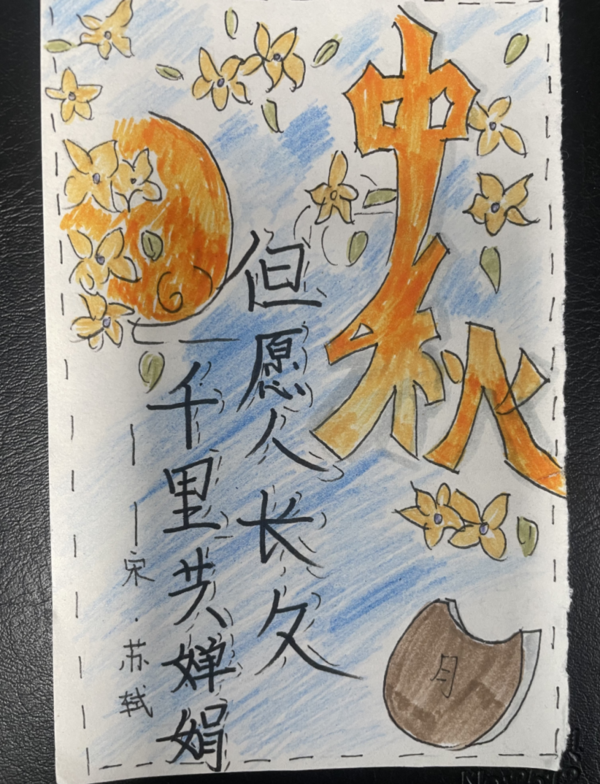 中秋
但愿人长久
千里共婵娟
——宋·苏轼
月